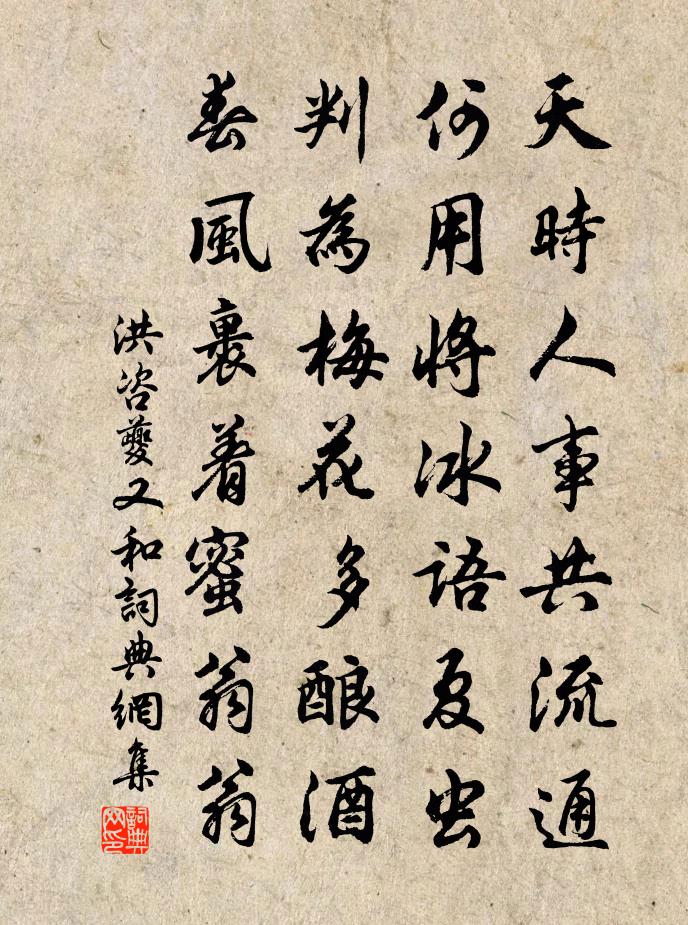 天時人事共流通
何用將冰語夏虫
判為梅花多酿酒
春風裏着蜜翁翁
洪咨夔又和詞典網集
詞典网印